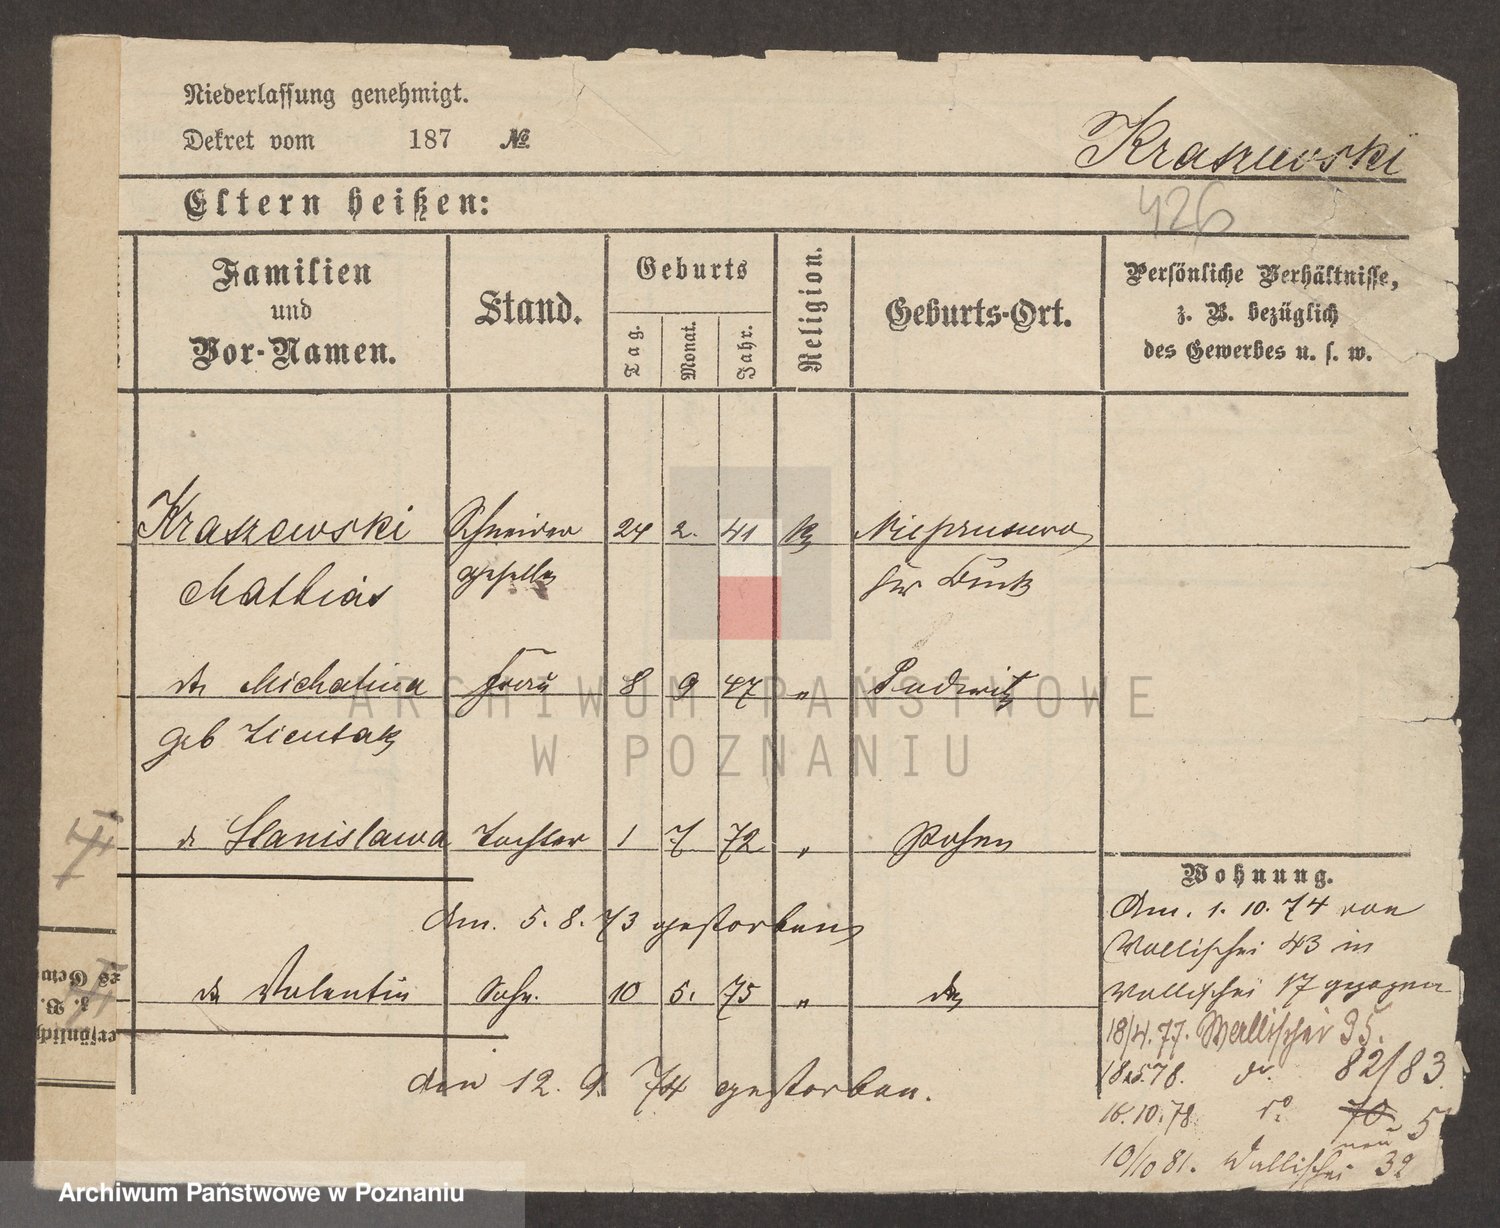 Niederlassung genehmigt.
Dekret vom 187 №
Kraszewski
Eltern heißen:
426
Familien
und
Vor-Namen.
Stand.
Geburts
Tag.
Monat.
Jahr.
Religion.
Geburts-Ort.
Persönliche Verhältnisse,
z. B. bezüglich
des Gewerbes u. s. w.
Kraszewski Schneider 24 2. 41 k Niepruszewo
Mathias geselle bei Buk
do Michalina Frau 8 9 47 " Pudewitz
geb Zientak
do Stanislawa Tochter 1 7 72 " Posen
am. 5. 8. 73 gestorben
do Valentin Sohn. 10 5. 75 " do
den 12. 9. 74 gestorben.
Wohnung.
Am. 1. 10. 74 von
Wallischei 43 in
Wallischei 17 gezogen
18/4. 77. Wallischei 35.
do. 82/83
16. 10. 78 do 70 5
neu
10/10 81. Wallischei 32
ARCHIWUM PAŃSTWOWE
W POZNANIU
Archiwum Państwowe w Poznaniu